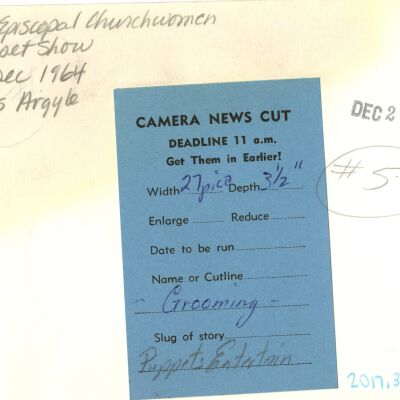 Episcopal Churchwomen
pet Show
Dec 1964
s Argyle
DEC 2
#5
CAMERA NEWS CUT
DEADLINE 11 a.m.
Get Them in Earlier!
Width 27 pica Depth 3 1/2"
Enlarge Reduce
Date to be run
Name or Cutline
- Grooming -
Slug of story
Puppets Entertain
2017.3